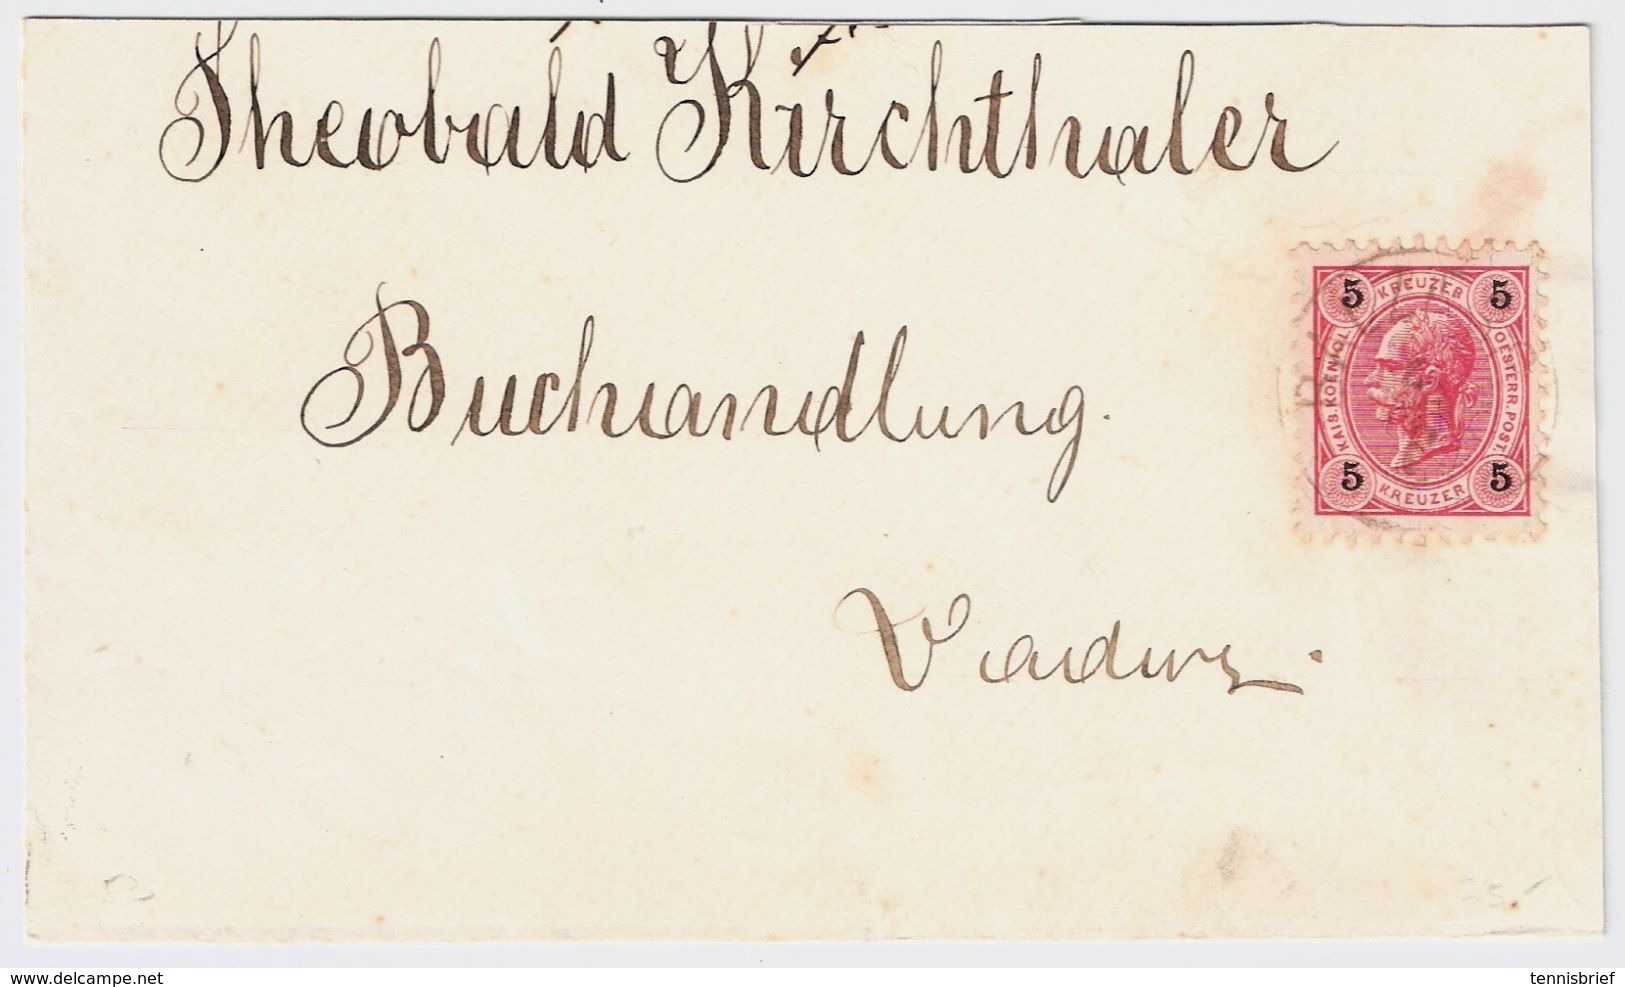 Theobald Kirchthaler
Buchhandlung.
5 KREUZER 5
KAIS. KOENIGL. OESTERR. POST.
5 KREUZER 5
www.delcampe.net
tennisbrief